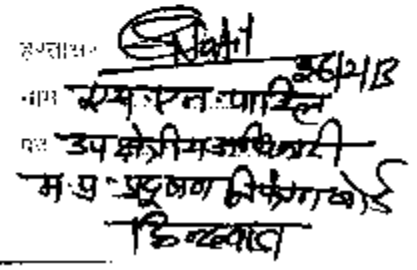 हस्ताक्षर
26/2/13
नाम एस.एन.पाटिल
पद उपक्षेत्रीय अधिकारी
म.प्र. प्रदूषण नियंत्रण बोर्ड
छिन्दवाड़ा